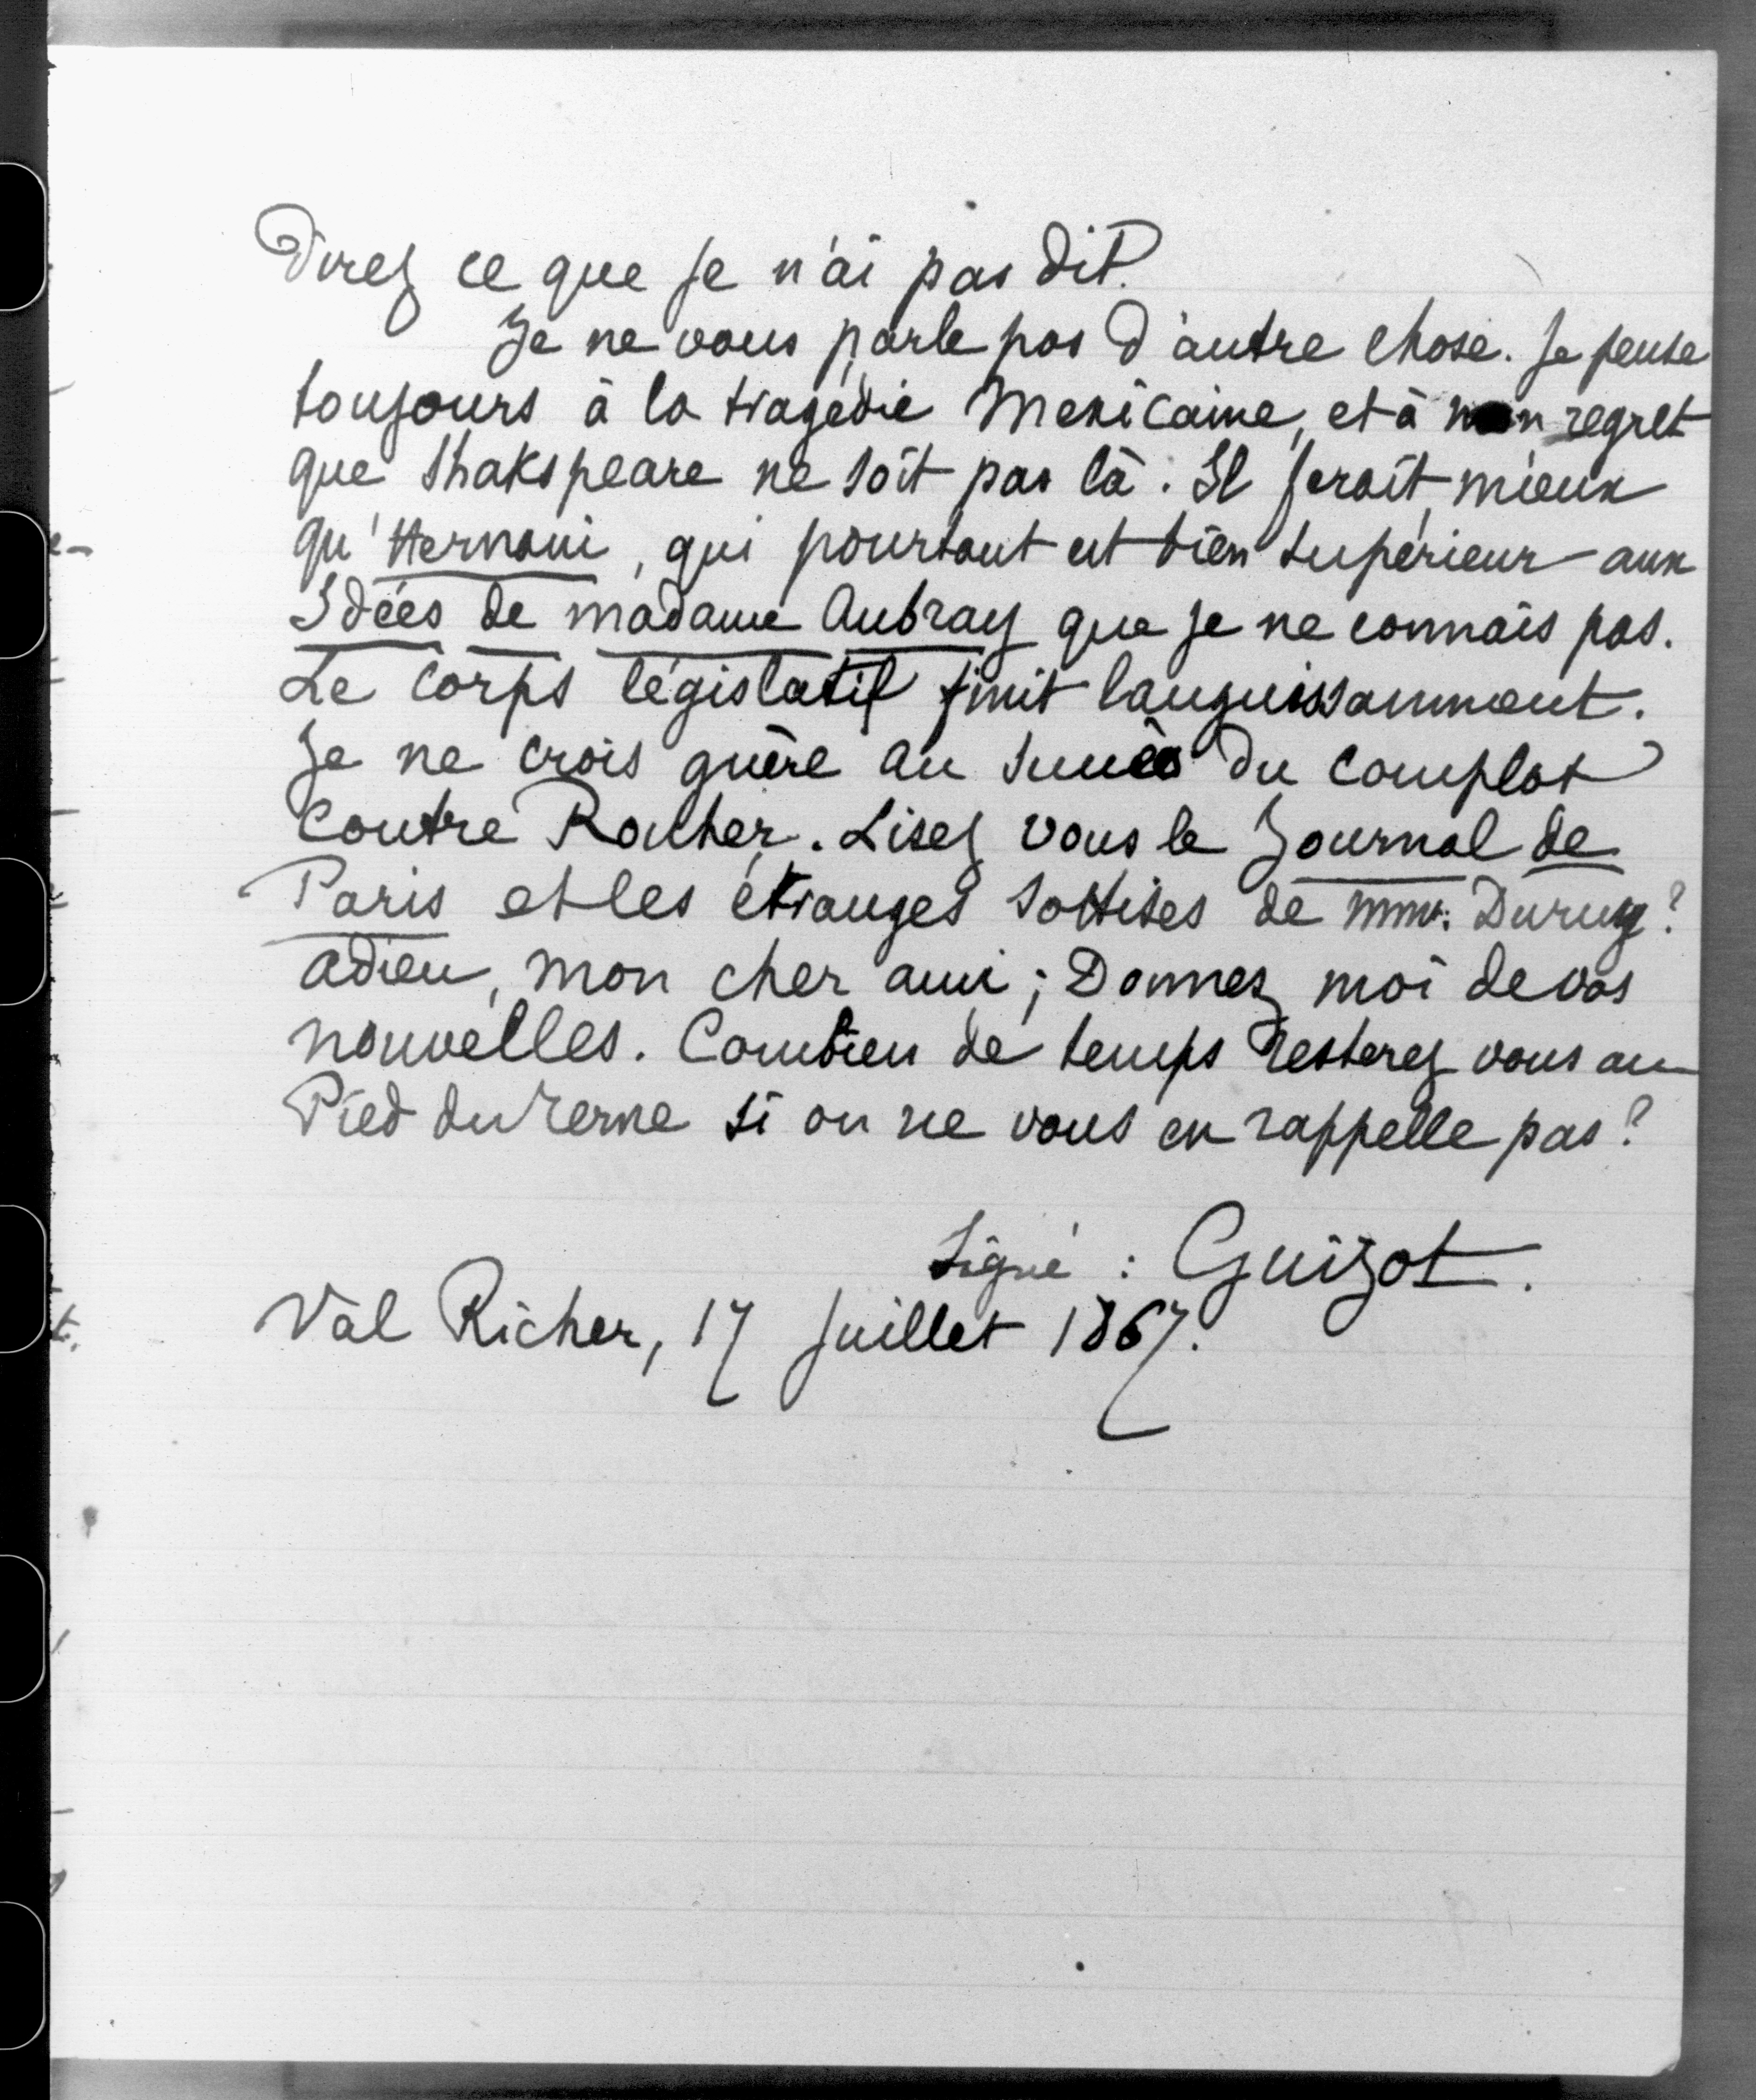 Direz ce que je n'ai pas dit.
Je ne vous parle pas d'autre chose. Je pense
toujours à la tragédie Mexicaine, et à mon regret
que Shakspeare ne soit pas là. Il ferait mieux
qu'Hernani, qui pourtant est bien supérieur aux
Idées de madame Aubray que je ne connais pas.
Le Corps législatif finit languissamment.
Je ne crois guère au succès du complot
contre Rouher. Lisez vous le Journal de
Paris et les étranges sottises de Duruy?
adieu, mon cher ami; Donnez moi de vos
nouvelles. Combien de temps resterez vous au
Pied du Terne si on ne vous en rappelle pas?
Signé : Guizot.
Val Richer, 17 juillet 1867.